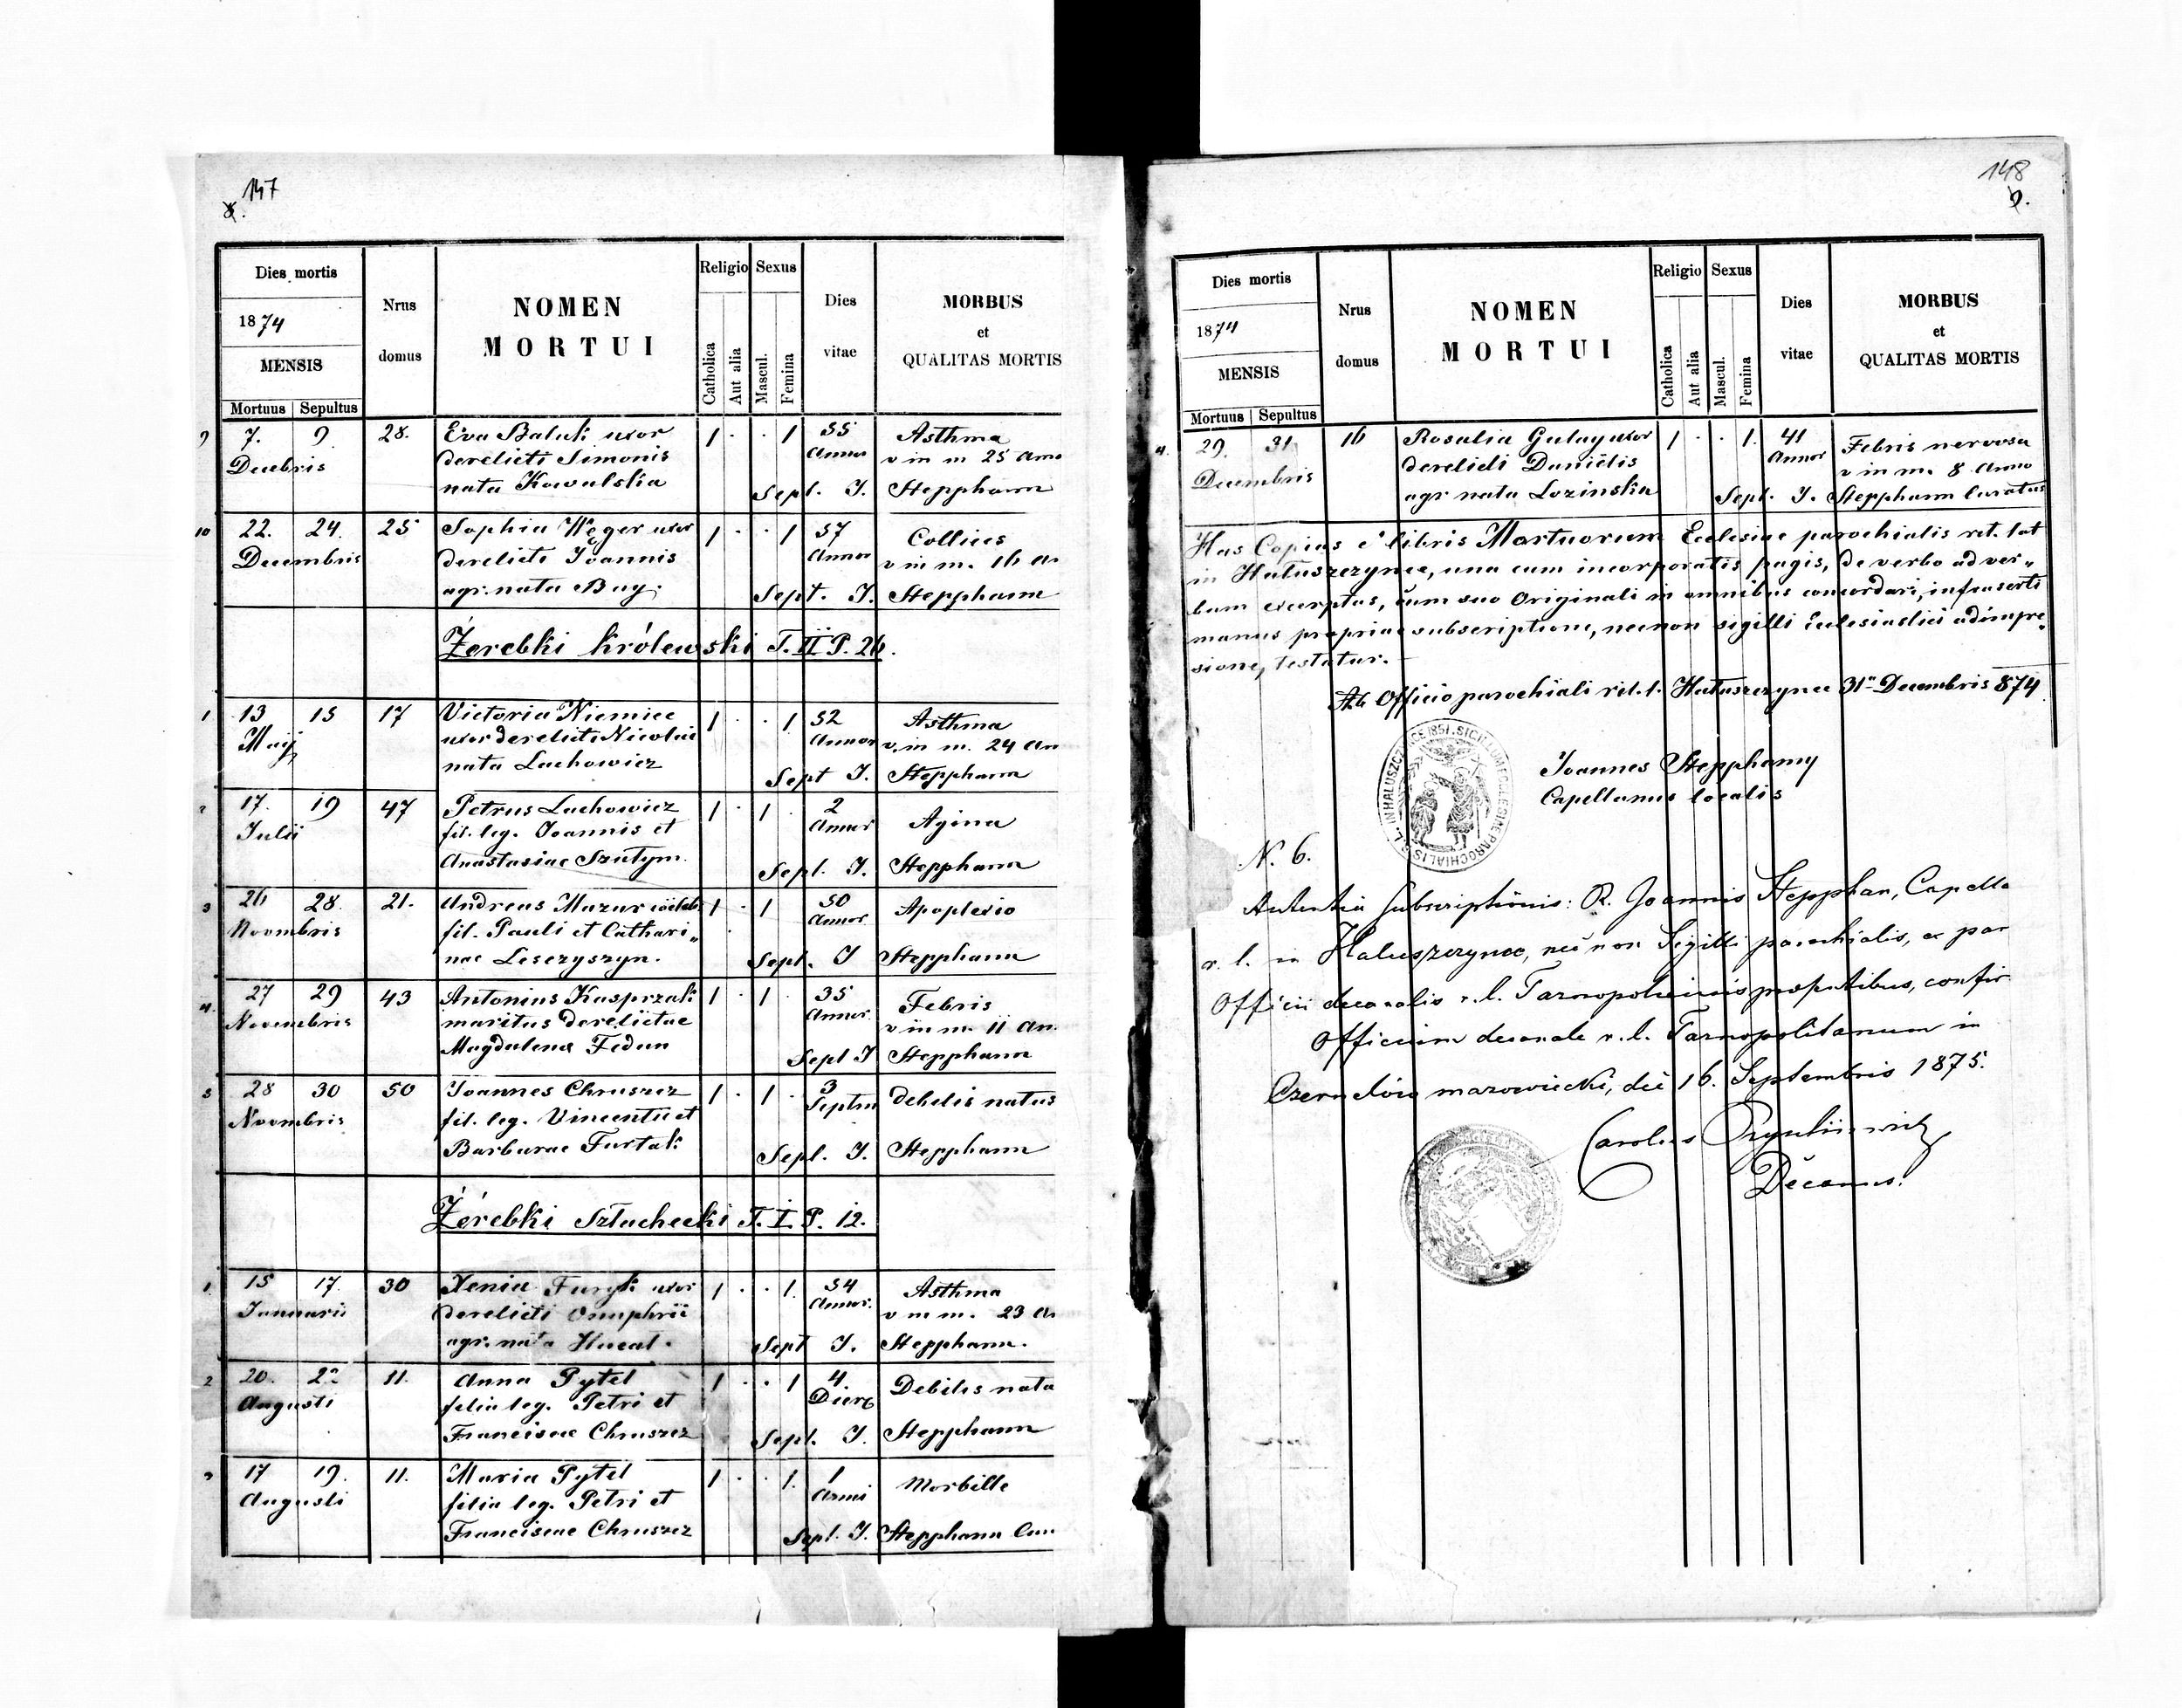 147
8.
Dies mortis
1874
MENSIS
Mortuus Sepultus
Nrus domus
NOMEN
MORTUI
Religio
Catholica
Aut alia
Sexus
Mascul.
Femina
Dies vitae
MORBUS
et
QUALITAS MORTIS
9 7. 9 28. Eva Baluk uxor 1 . . 1 55 Asthma
Decebris derelicti Simonis Annor v in m 25 Ann
nata Kowalska Sept. J. Stepphann
10 22. 24. 25 Sophia Weger uxor 1 . . 1 57 Collices
Decembris derelicti Joannis Annor v in m. 16 an
agr. nata Buy. Sept. J. Stepphann
Żerebki królewski T. II P. 26.
1 13 15 17 Victoria Niemiec 1 . . 1 52 Asthma
Maij uxor derelicti Nicolai Annor v. in m. 24 an
nata Lachowicz Sept J. Stepphann
2 17. 19 47 Petrus Lachowicz 1 . 1 . 2 Agina
Julii fil. leg. Joannis et Annor
Anastasiae Szatym. Sept. J. Stepphann
3 26 28. 21. Andreas Mazur 1 . 1 50 Apoplexio
Novmbris fil. Pauli et Cathari„ Annor
nae Leszczyszyn. Sept. J Stepphann
4. 27 29 43 Antonius Kasprzak 1 . 1 . 35 Febris
Novembris maritus derelictae Annor v in m. 11 An.
Magdalena Fedun Sept J Stepphann
5 28 30 50 Joannes Chruszcz 1 . 1 . 3 debelis natus
Novmbris fil. leg. Vincentii et Septm
Barbarae Furtak Sept. J. Stepphann
Żérebki Szlachecki T. I. P. 12.
1. 15 17. 30 Xenia Furyk uxor 1 . . 1. 54 Asthma
Januarii derelicti Onuphrii Annor. v in m. 23 an
agr. nata Sept J. Stepphann.
2 20. 22 11. Anna Pytel 1 . . 1 4 Debilis nata
Augusti filia leg. Petri et Dierum
Franciscae Chruszcz Sept. J. Stepphann
3 17 19. 11. Maria Pytel 1 . . 1. 1 Morbille
Augusti filia leg. Petri et Anni
Franciscae Chruszcz Sept. J. Stepphann Cura
148
9.
Dies mortis
1874
MENSIS
Mortuus Sepultus
Nrus domus
NOMEN
MORTUI
Religio
Catholica
Aut alia
Sexus
Mascul.
Femina
Dies vitae
MORBUS
et
QUALITAS MORTIS
4. 29. 31. 16 Rosalia Gulay uxor 1 . . 1. 41 Febris nervosa
Decembris derelicti Daniélis Annor v in m. 8 Anno
agr nata Lozinska Sept. J. Stepphann Curatus
Has Copias e libris Mortuorum Ecclesiae parochialis rit. lat
in Hałuszczynce, una cum incorporatis pagis, de verbo ad ver„
bum excerptas, cum suo Originali in omnibus concordari, infrascripti
manus propriae subscriptione, necnon sigilli Ecclesiastici adimpre„
sione, testatur.
Ab Officio parochiali rit. l. Hałuszczynce 31n Decembris 874
SIGILLUM ECCLESIAE PAROCHIALIS R. L. IN HALUSZCZYNCE 1851.
Joannes Stepphany
Capellanus localis
N. 6.
Autentia subscriptionis: R. Joannis Stepphan, Capella
r. l. in Haluszczynce, nec non Sigilli parochialis, ex par
Officii decanalis r. l. Tarnopoliensis praesentibus, confir.
Officium decanale r. l. Tarnopolitanum in
Czernelów mazowiecki, die 16. Septembris 1875.
Carolus
Decanus.